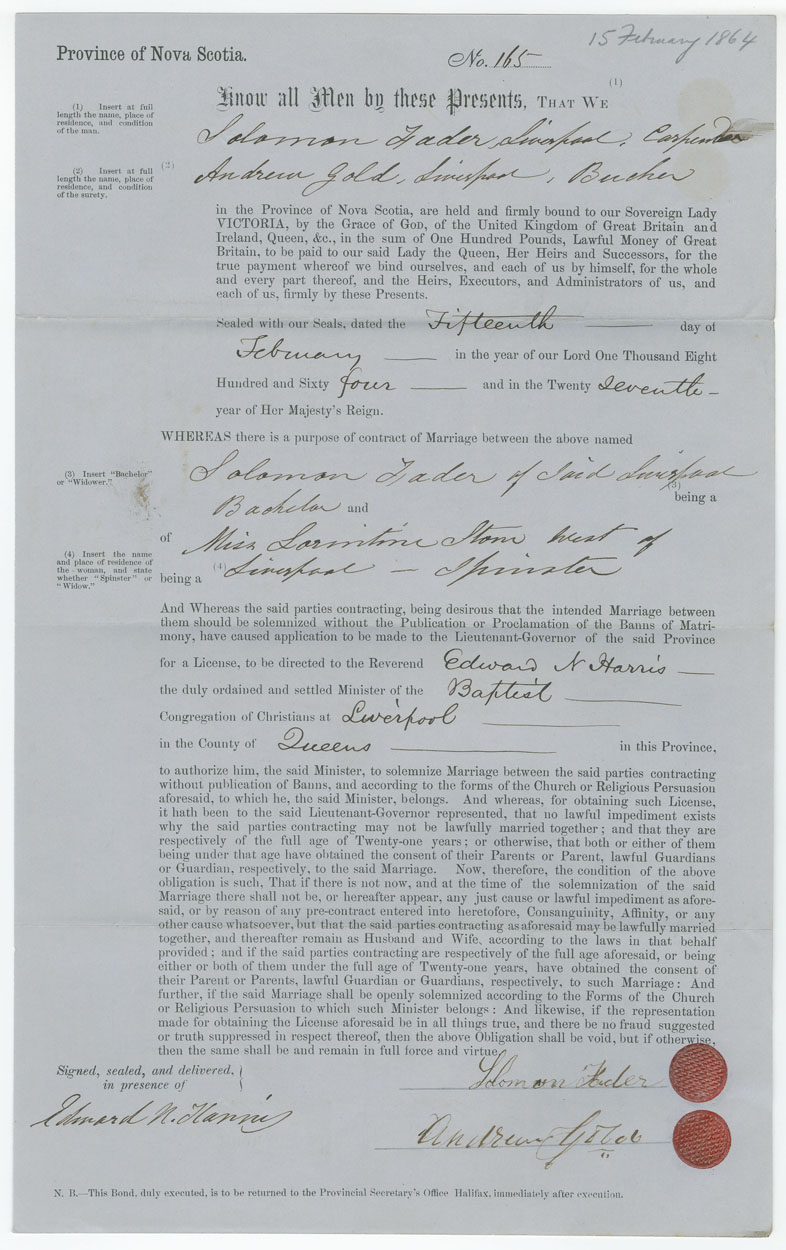 15 February 1864
Province of Nova Scotia.
No. 165
(1)
Know all Men by these Presents, THAT WE
(1) Insert at full
length the name, place of
residence, and condition
of the man.
Solomon Fader Liverpool, Carpenter
(2)
(2) Insert at full
length the name, place of
residence, and condition
of the surety.
Andrew Gold, Liverpool, Bucher
in the Province of Nova Scotia, are held and firmly bound to our Sovereign Lady
VICTORIA, by the Grace of GOD, of the United Kingdom of Great Britain and
Ireland, Queen, &c., in the sum of One Hundred Pounds, Lawful Money of Great
Britain, to be paid to our said Lady the Queen, Her Heirs and Successors, for the
true payment whereof we bind ourselves, and each of us by himself, for the whole
and every part thereof, and the Heirs, Executors, and Administrators of us, and
each of us, firmly by these Presents.
Sealed with our Seals, dated the Fifteenth day of
February in the year of our Lord One Thousand Eight
Hundred and Sixty four and in the Twenty Seventh
year of Her Majesty's Reign.
WHEREAS there is a purpose of contract of Marriage between the above named
(3) Insert "Bachelor"
or "Widower."
Solomon Fader of Said Liverpool
(3)
being a
Bachelor and
of Miss Storm West of
(4) Insert the name
and place of residence of
the woman, and state
whether "Spinster" or
"Widow."
being a (4) Liverpool — Spinster
And Whereas the said parties contracting, being desirous that the intended Marriage between
them should be solemnized without the Publication or Proclamation of the Banns of Matri-
mony, have caused application to be made to the Lieutenant-Governor of the said Province
for a License, to be directed to the Reverend Edward N Harris —
the duly ordained and settled Minister of the Baptist
Congregation of Christians at Liverpool
in the County of Queens in this Province,
to authorize him, the said Minister, to solemnize Marriage between the said parties contracting
without publication of Banns, and according to the forms of the Church or Religious Persuasion
aforesaid, to which he, the said Minister, belongs. And whereas, for obtaining such License,
it hath been to the said Lieutenant-Governor represented, that no lawful impediment exists
why the said parties contracting may not be lawfully married together; and that they are
respectively of the full age of Twenty-one years; or otherwise, that both or either of them
being under that age have obtained the consent of their Parents or Parent, lawful Guardians
or Guardian, respectively, to the said Marriage. Now, therefore, the condition of the above
obligation is such, That if there is not now, and at the time of the solemnization of the said
Marriage there shall not be, or hereafter appear, any just cause or lawful impediment as afore-
said, or by reason of any pre-contract entered into heretofore, Consanguinity, Affinity, or any
other cause whatsoever, but that the said parties contracting as aforesaid may be lawfully married
together, and thereafter remain as Husband and Wife, according to the laws in that behalf
provided; and if the said parties contracting are respectively of the full age aforesaid, or being
either or both of them under the full age of Twenty-one years, have obtained the consent of
their Parent or Parents, lawful Guardian or Guardians, respectively, to such Marriage: And
further, if the said Marriage shall be openly solemnized according to the Forms of the Church
or Religious Persuasion to which such Minister belongs: And likewise, if the representation
made for obtaining the License aforesaid be in all things true, and there be no fraud suggested
or truth suppressed in respect thereof, then the above Obligation shall be void, but if otherwise,
then the same shall be and remain in full force and virtue.
Signed, sealed, and delivered,
in presence of
Solomon Fader
Edward N. Harris
Andrew Gold
N. B.—This Bond, duly executed, is to be returned to the Provincial Secretary's Office Halifax, immediately after execution.